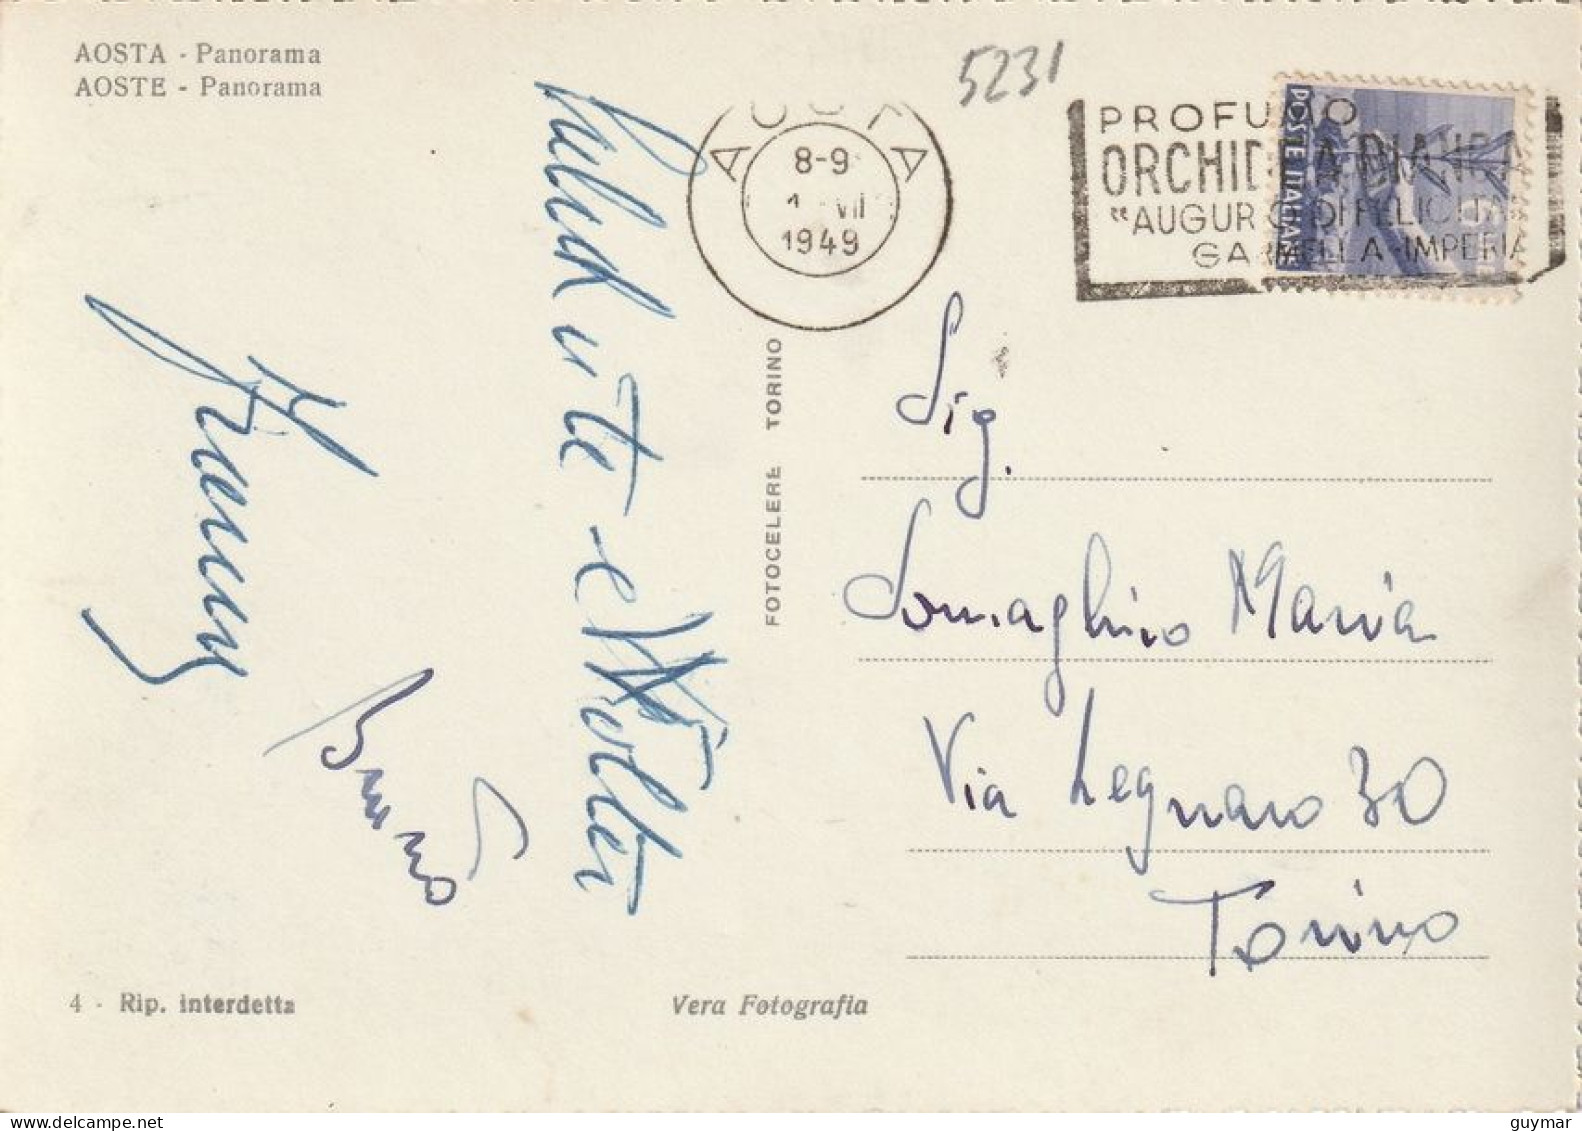 AOSTA - Panorama
AOSTE - Panorama
5231
AOSTA
8-9
1 VII
1949
PROFUMO
ORCHIDEA BIANCA
"AUGURIO DI FELICITA
GARMELLA-IMPERIA
POSTE ITALIANE
FOTOCELERE TORINO
Salud ute e Wolter
Franny
Bruno
Sig.
Somaglino Maria
Via Legnano 30
Torino
4 - Rip. interdetta
Vera Fotografia
delcampe.net
guymar